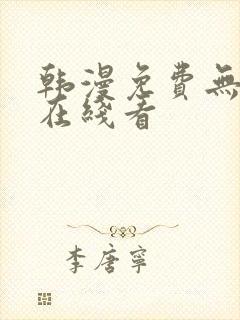 韩漫免费無
在线看
李唐寧